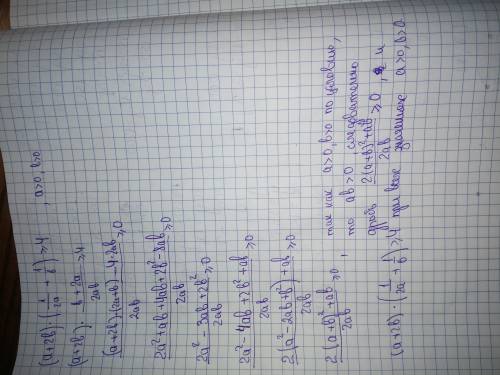 (a+2b)·(1/2a + 1/b) ≥ 4 , a>0, b>0
(a+2b)· b+2a/2ab ≥ 4
(a+2b)(2a+b) - 4·2ab/2ab ≥ 0
2a² + ab + 4ab + 2b² - 8ab/2ab ≥ 0
2a² - 3ab + 2b²/2ab ≥ 0
2a² - 4ab + 2b² + ab/2ab ≥ 0
2(a² - 2ab + b²) + ab/2ab ≥ 0
2(a+b)² + ab/2ab ≥ 0 , так как a>0, b>0 по условию,
то ab>0, следовательно
дробь 2(a+b)² + ab/2ab ≥ 0, и
(a+2b)·(1/2a + 1/b) ≥ 4 при всех значениях a>0, b>0